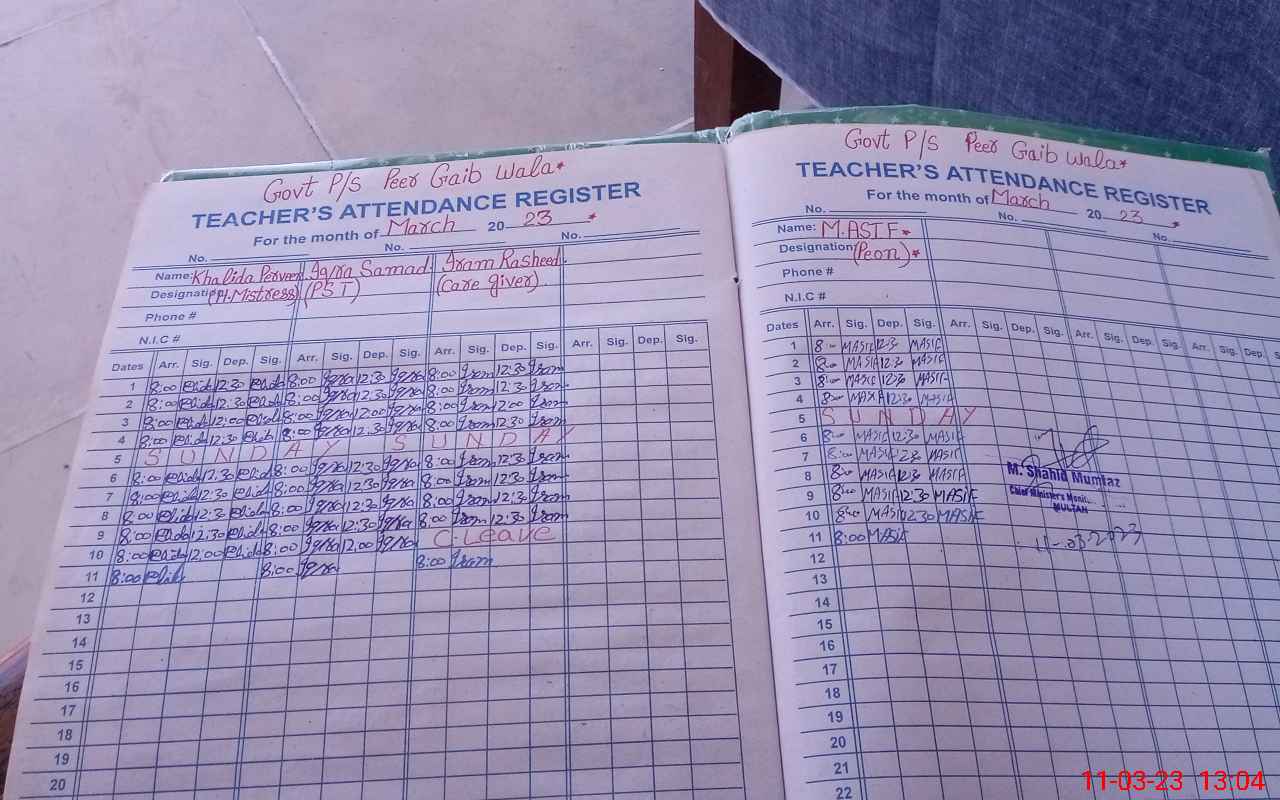 Govt P/S Peer Gaib Wala*
TEACHER'S ATTENDANCE REGISTER
For the month of March 20 23 *
No. No. No.
Name: Khalida Perveen Iqra Samad Iram Rasheed
Designation (H.Mistress) (PST) (Care giver)
Phone #
N.I.C #
Dates Arr. Sig. Dep. Sig. Arr. Sig. Dep. Sig. Arr. Sig. Dep. Sig. Arr. Sig. Dep. Sig.
1 8:00 12:30 8:00 Iqra 12:30 Iqra 8:00 Iram 12:30 Iram
2 8:00 12:30 8:00 Iqra 12:30 Iqra 8:00 Iram 12:30 Iram
3 8:00 12:00 8:00 Iqra 12:00 Iqra 8:00 Iram 12:00 Iram
4 8:00 12:30 8:00 Iqra 12:30 Iqra 8:00 Iram 12:30 Iram
5 SUNDAY SUNDAY
6 8:00 12:30 8:00 Iqra 12:30 Iqra 8:00 Iram 12:30 Iram
7 8:00 12:30 8:00 Iqra 12:30 Iqra 8:00 Iram 12:30 Iram
8 8:00 12:30 8:00 Iqra 12:30 Iqra 8:00 Iram 12:30 Iram
9 8:00 12:30 8:00 Iqra 12:30 Iqra 8:00 Iram 12:30 Iram
10 8:00 12:00 8:00 Iqra 12:00 Iqra C-Leave
11 8:00 8:00 Iqra 8:00 Iram
12
13
14
15
16
17
18
19
20
Govt P/S Peer Gaib Wala*
TEACHER'S ATTENDANCE REGISTER
For the month of March 20 23 *
No. No. No.
Name: M.ASIF*
Designation (Peon)*
Phone #
N.I.C #
Dates Arr. Sig. Dep. Sig. Arr. Sig. Dep. Sig. Arr. Sig. Dep. Sig. Arr. Sig. Dep.
1 8:00 MASIF 12:30 MASIF
2 8:00 MASIF 12:30 MASIF
3 8:00 MASIF 12:30 MASIF
4 8:00 MASIF 12:30 MASIF
5 SUNDAY
6 8:00 MASIF 12:30 MASIF
7 8:00 MASIF 12:30 MASIF
8 8:00 MASIF 12:30 MASIF
9 8:00 MASIF 12:30 MASIF
10 8:00 MASIF 12:30 MASIF
11 8:00 MASIF
12
13
14
15
16
17
18
19
20
21
22
M. Shahid Mumtaz
Chief Minister's Monit..
MULTAN
11-03-2023
11-03-23 13:04